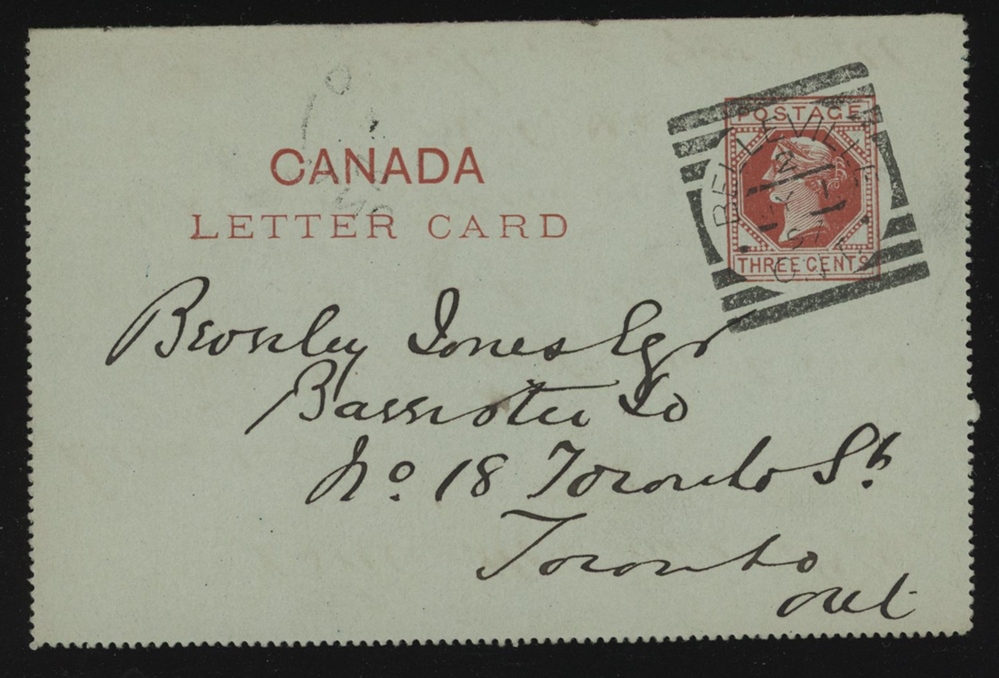 POSTAGE
THREE CENTS
BELLEVILLE
ONT
CANADA
LETTER CARD
Jones Esqr
Barrister &o
No. 18 Toronto St.
Toronto
Ont